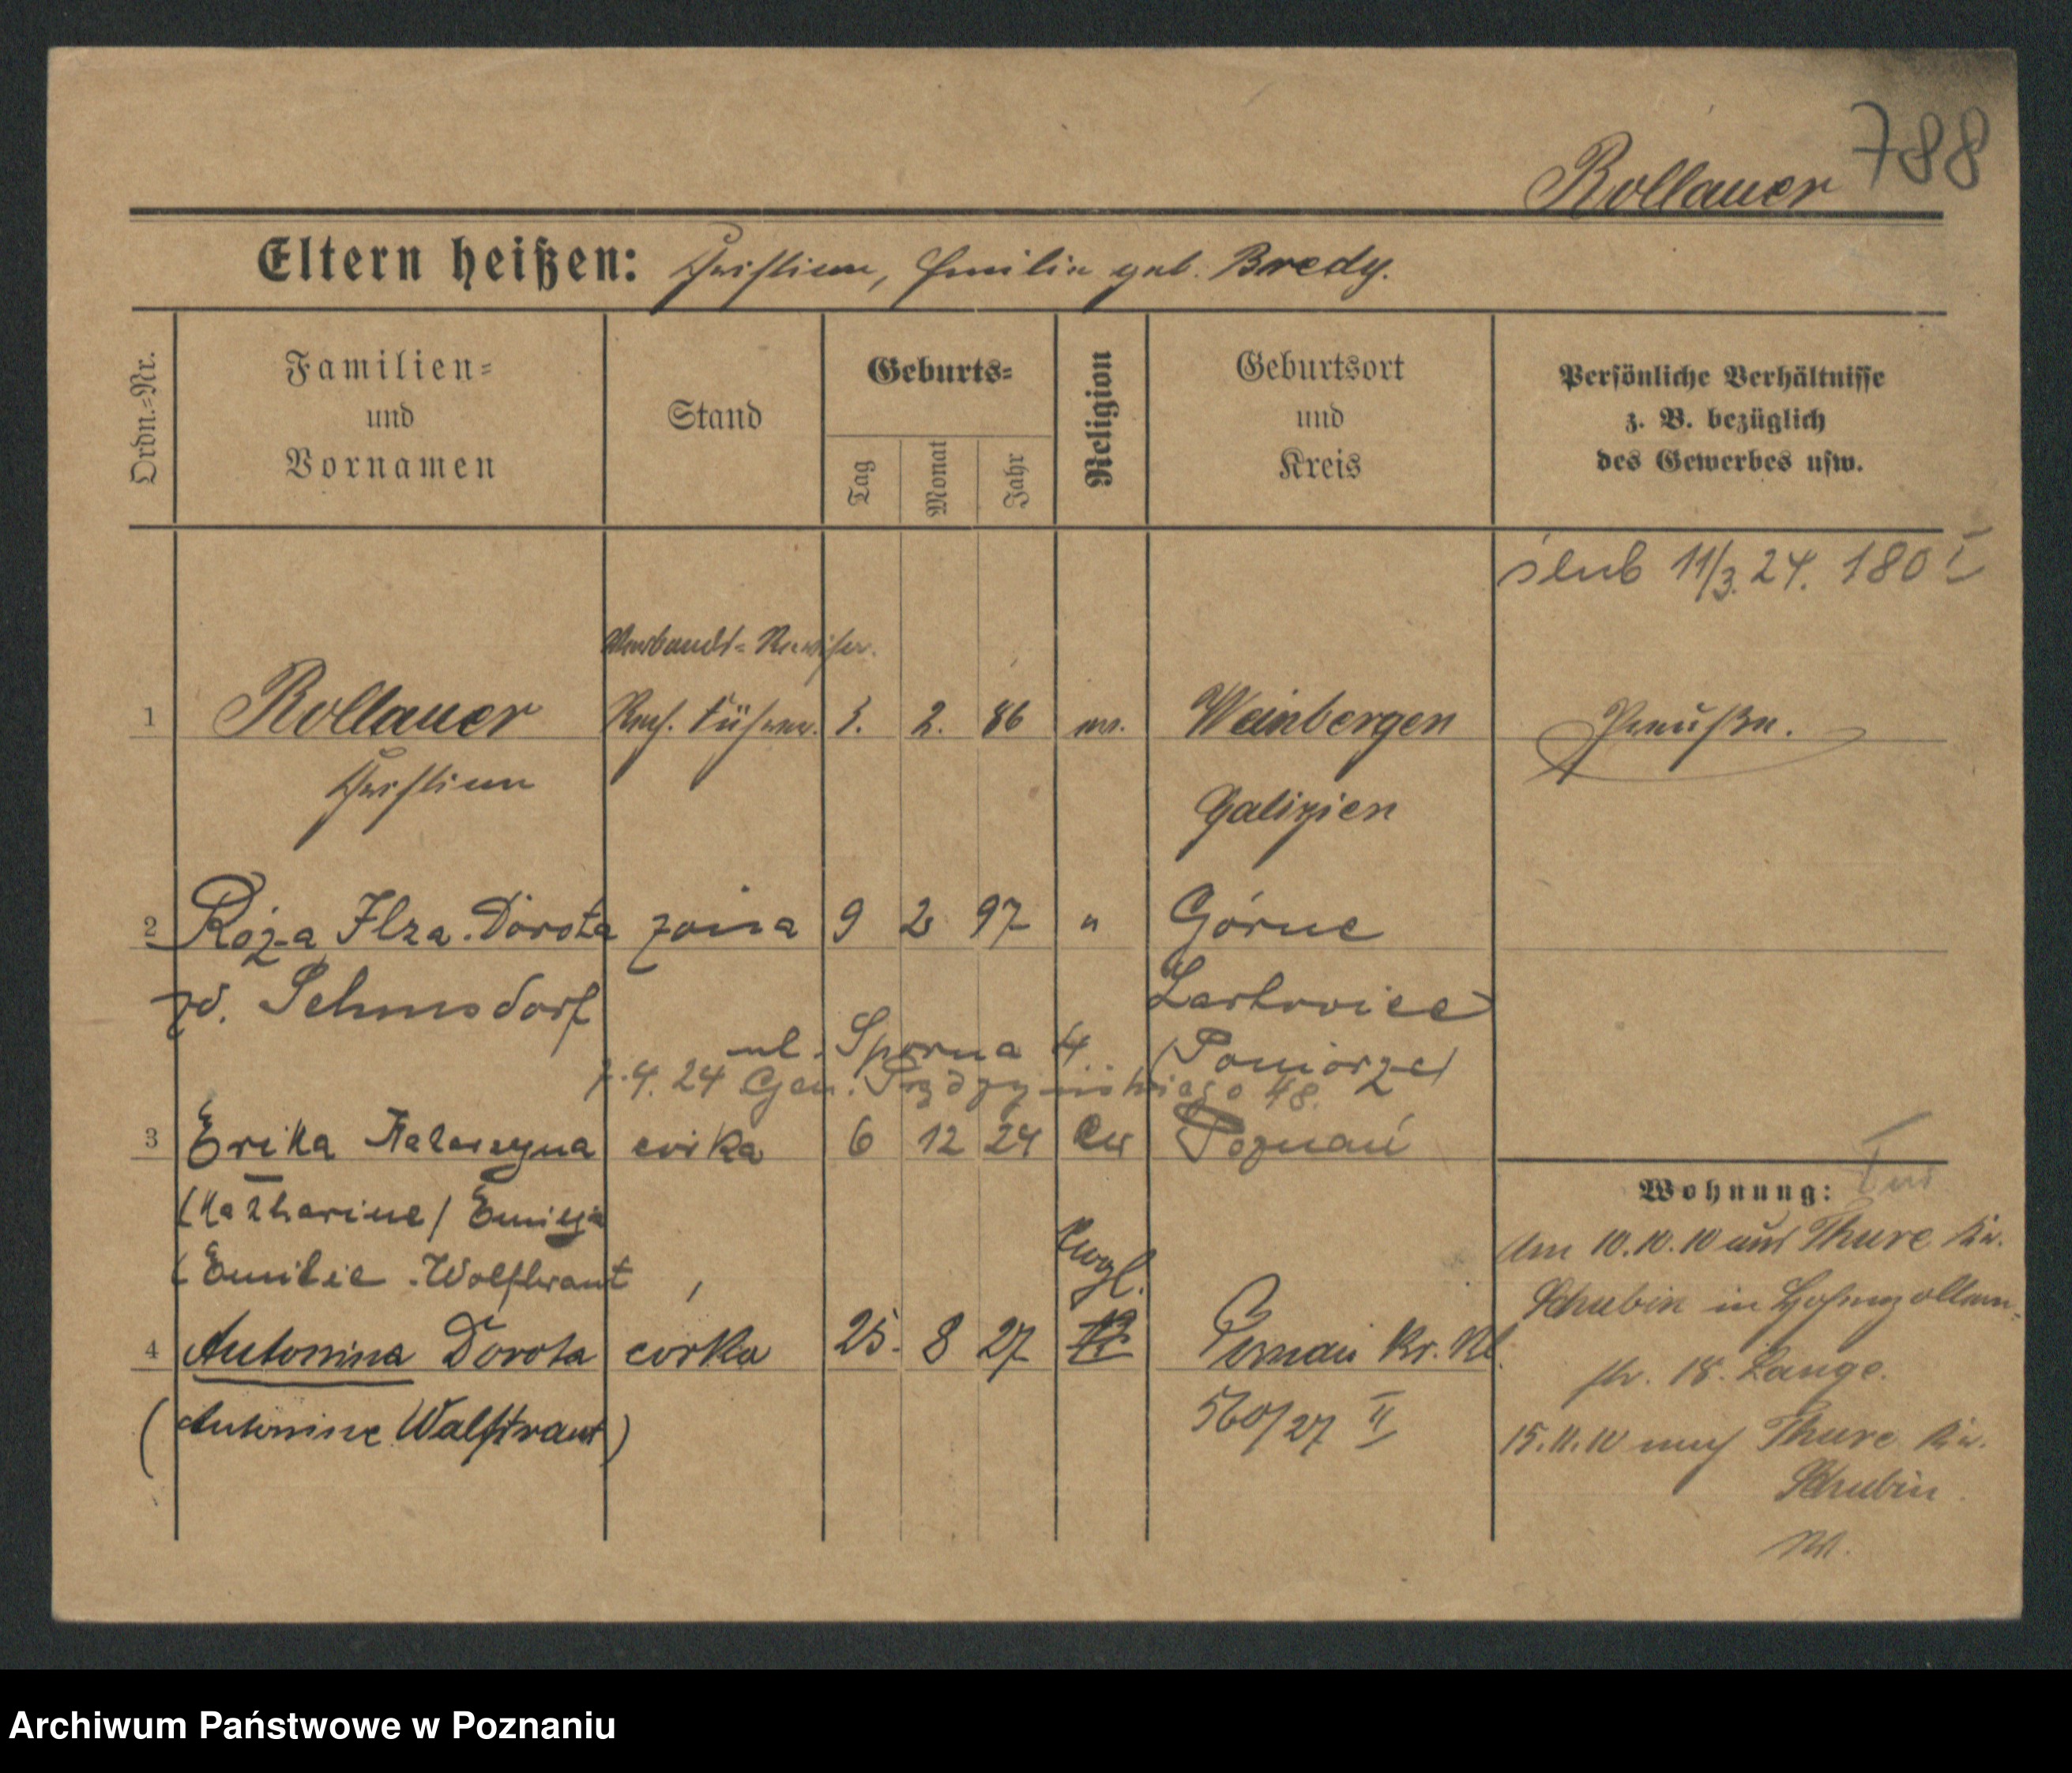 788
Rollauer
Eltern heißen: Christian, Emilie geb. Bredy.
Ordn.-Nr.
Familien- und Vornamen
Stand
Geburts-
Tag
Monat
Jahr
Religion
Geburtsort und Kreis
Persönliche Verhältnisse z. B. bezüglich des Gewerbes usw.
ślub 11/3. 24. 180 I
Verbands-Revisor.
1 Rollauer Rech. Führer. 2. 86 ev. Weinbergen Preuße.
Christian Galizien
2 Róża Ilza Dorota żona 9 2 97 " Górne
zd. Sehmsdorf
ul. Sporna 4 (Pomorze)
7.4.24 Gen. Prądzyńskiego 48.
3 Erika Katarzyna córka 6 12 24 ew Poznań
Wohnung:
(Katharine) Emilja
Am 10.10.10 aus Thure Kr.
(Emilie Wolftraut
Evgl.
Schubin in Hohenzollern-
4 Antonina Dorota córka 25. 8 27 Poznań
str. 18. Lange.
(Antonine Walftraut) 560/27 II
15.11.10 nach Thure Kr.
Schubin.
Archiwum Państwowe w Poznaniu